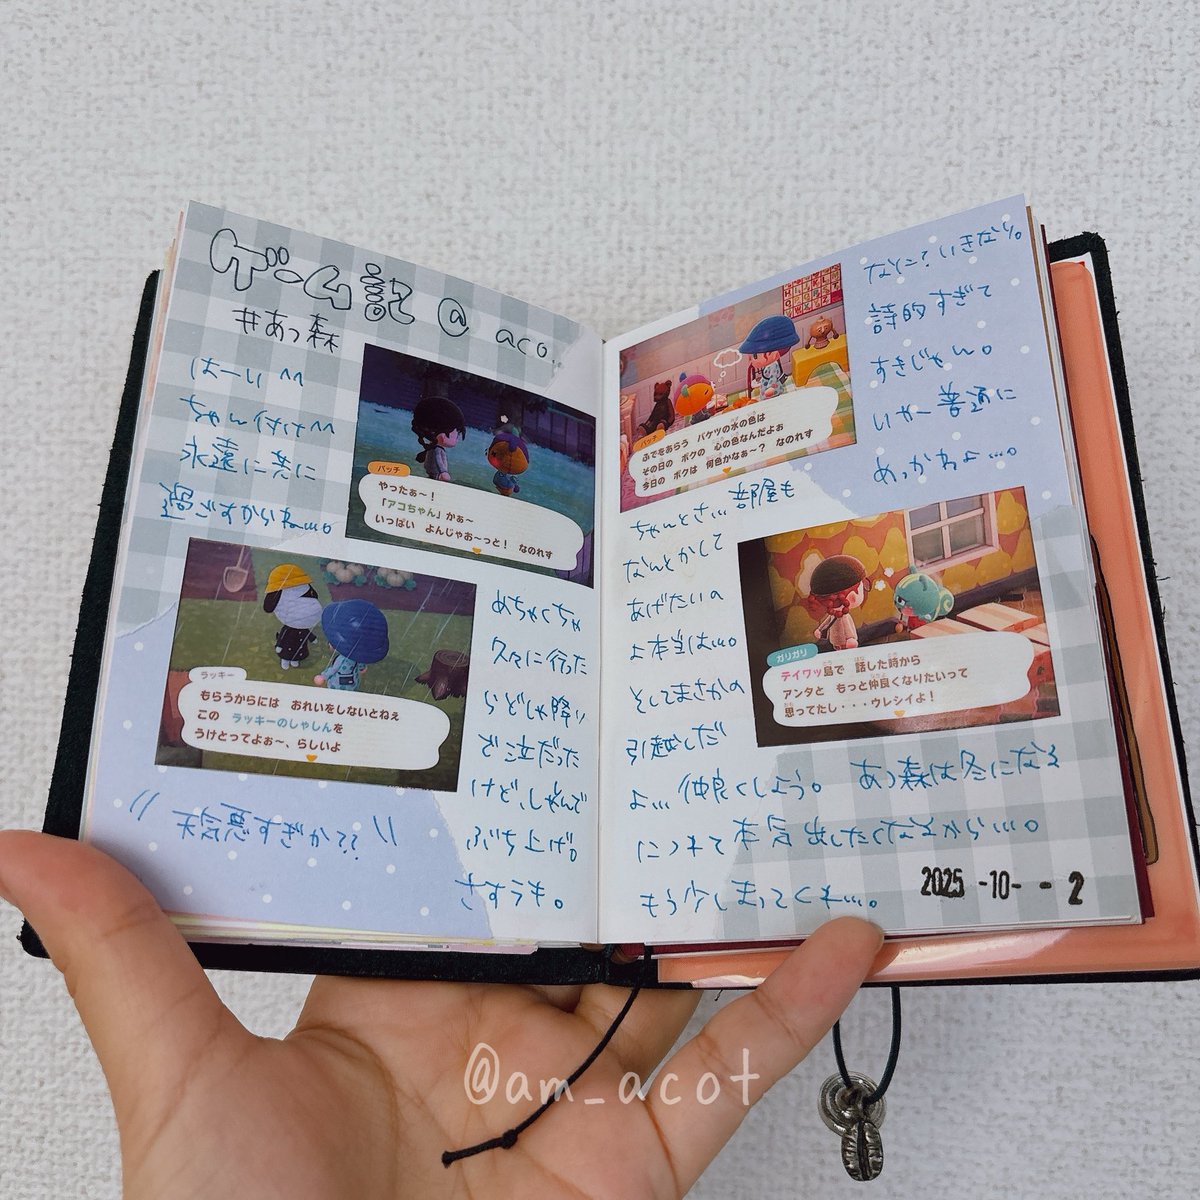 ゲーム記 @ aco..
#あつ森
はーい^^
ちゃん付け^^
永遠に共に
過ごすからね…。
バッチ
やったぁ～！
「アコちゃん」かぁ～
いっぱい よんじゃお～っと！ なのれす
ラッキー
もらうからには おれいをしないとねぇ
この ラッキーのしゃしんを
うけとってよぉ～、らしいよ
めちゃくちゃ
久々に行った
らどしゃ降り
で泣だった
けど、しゃしんで
ぶち上げ。
さすうも。
\\ 天気悪すぎか?? //
なに？いきなり。
詩的すぎて
すきじゃん。
いやー普通に
めっかわよ…。
バッチ
ふでをあらう バケツの水の色は
その日の ボクの 心の色なんだよぉ
今日の ボクは 何色かなぁ～？ なのれす
ちゃんとさ… 部屋も
なんとかして
あげたいの
よ本当は…。
そしてまさかの
引越しだ
よ… 仲良くしよう。 あつ森は冬になる
につれて本気出したくなるから…。
もう少しまってくれ…。
ガリガリ
テイワッ島で 話した詩から
アンタと もっと仲良くなりたいって
思ってたし・・・ウレシイよ！
2025 -10- - 2
@am_acot